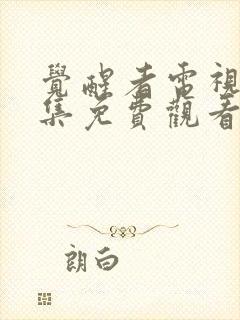 覺醒者電視
集免費觀看
朗白